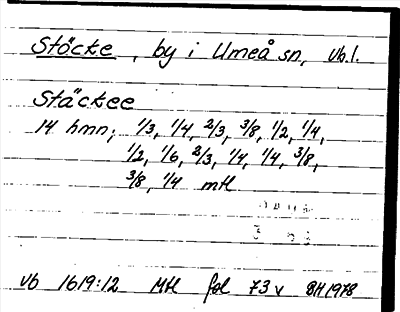 Stöcke, by i Umeå sn, Vb.l.
Stäckee
14 hmn; 1/3, 1/4, 2/3, 3/8, 1/2, 1/4,
1/2, 1/6, 2/3, 1/4, 1/4, 3/8,
3/8, 1/4 mtl
Vb 1619:12 Mtl fol 73v BH 1978